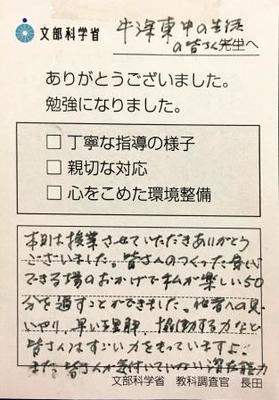 文部科学省
牛津東中の生徒
の皆さん先生へ
ありがとうございました。
勉強になりました。
□ 丁寧な指導の様子
□ 親切な対応
□ 心をこめた環境整備
本日は授業させていただきありがとう
ございました。皆さんのつくった安心
できる場のおかげで私が楽しい50
分を過すことができました。他者への思
いやり、早い理解、協働する力など
皆さんはすごい力をもっていますよ。
また、皆さんが気付いていない潜在能力
文部科学省 教科調査官 長田